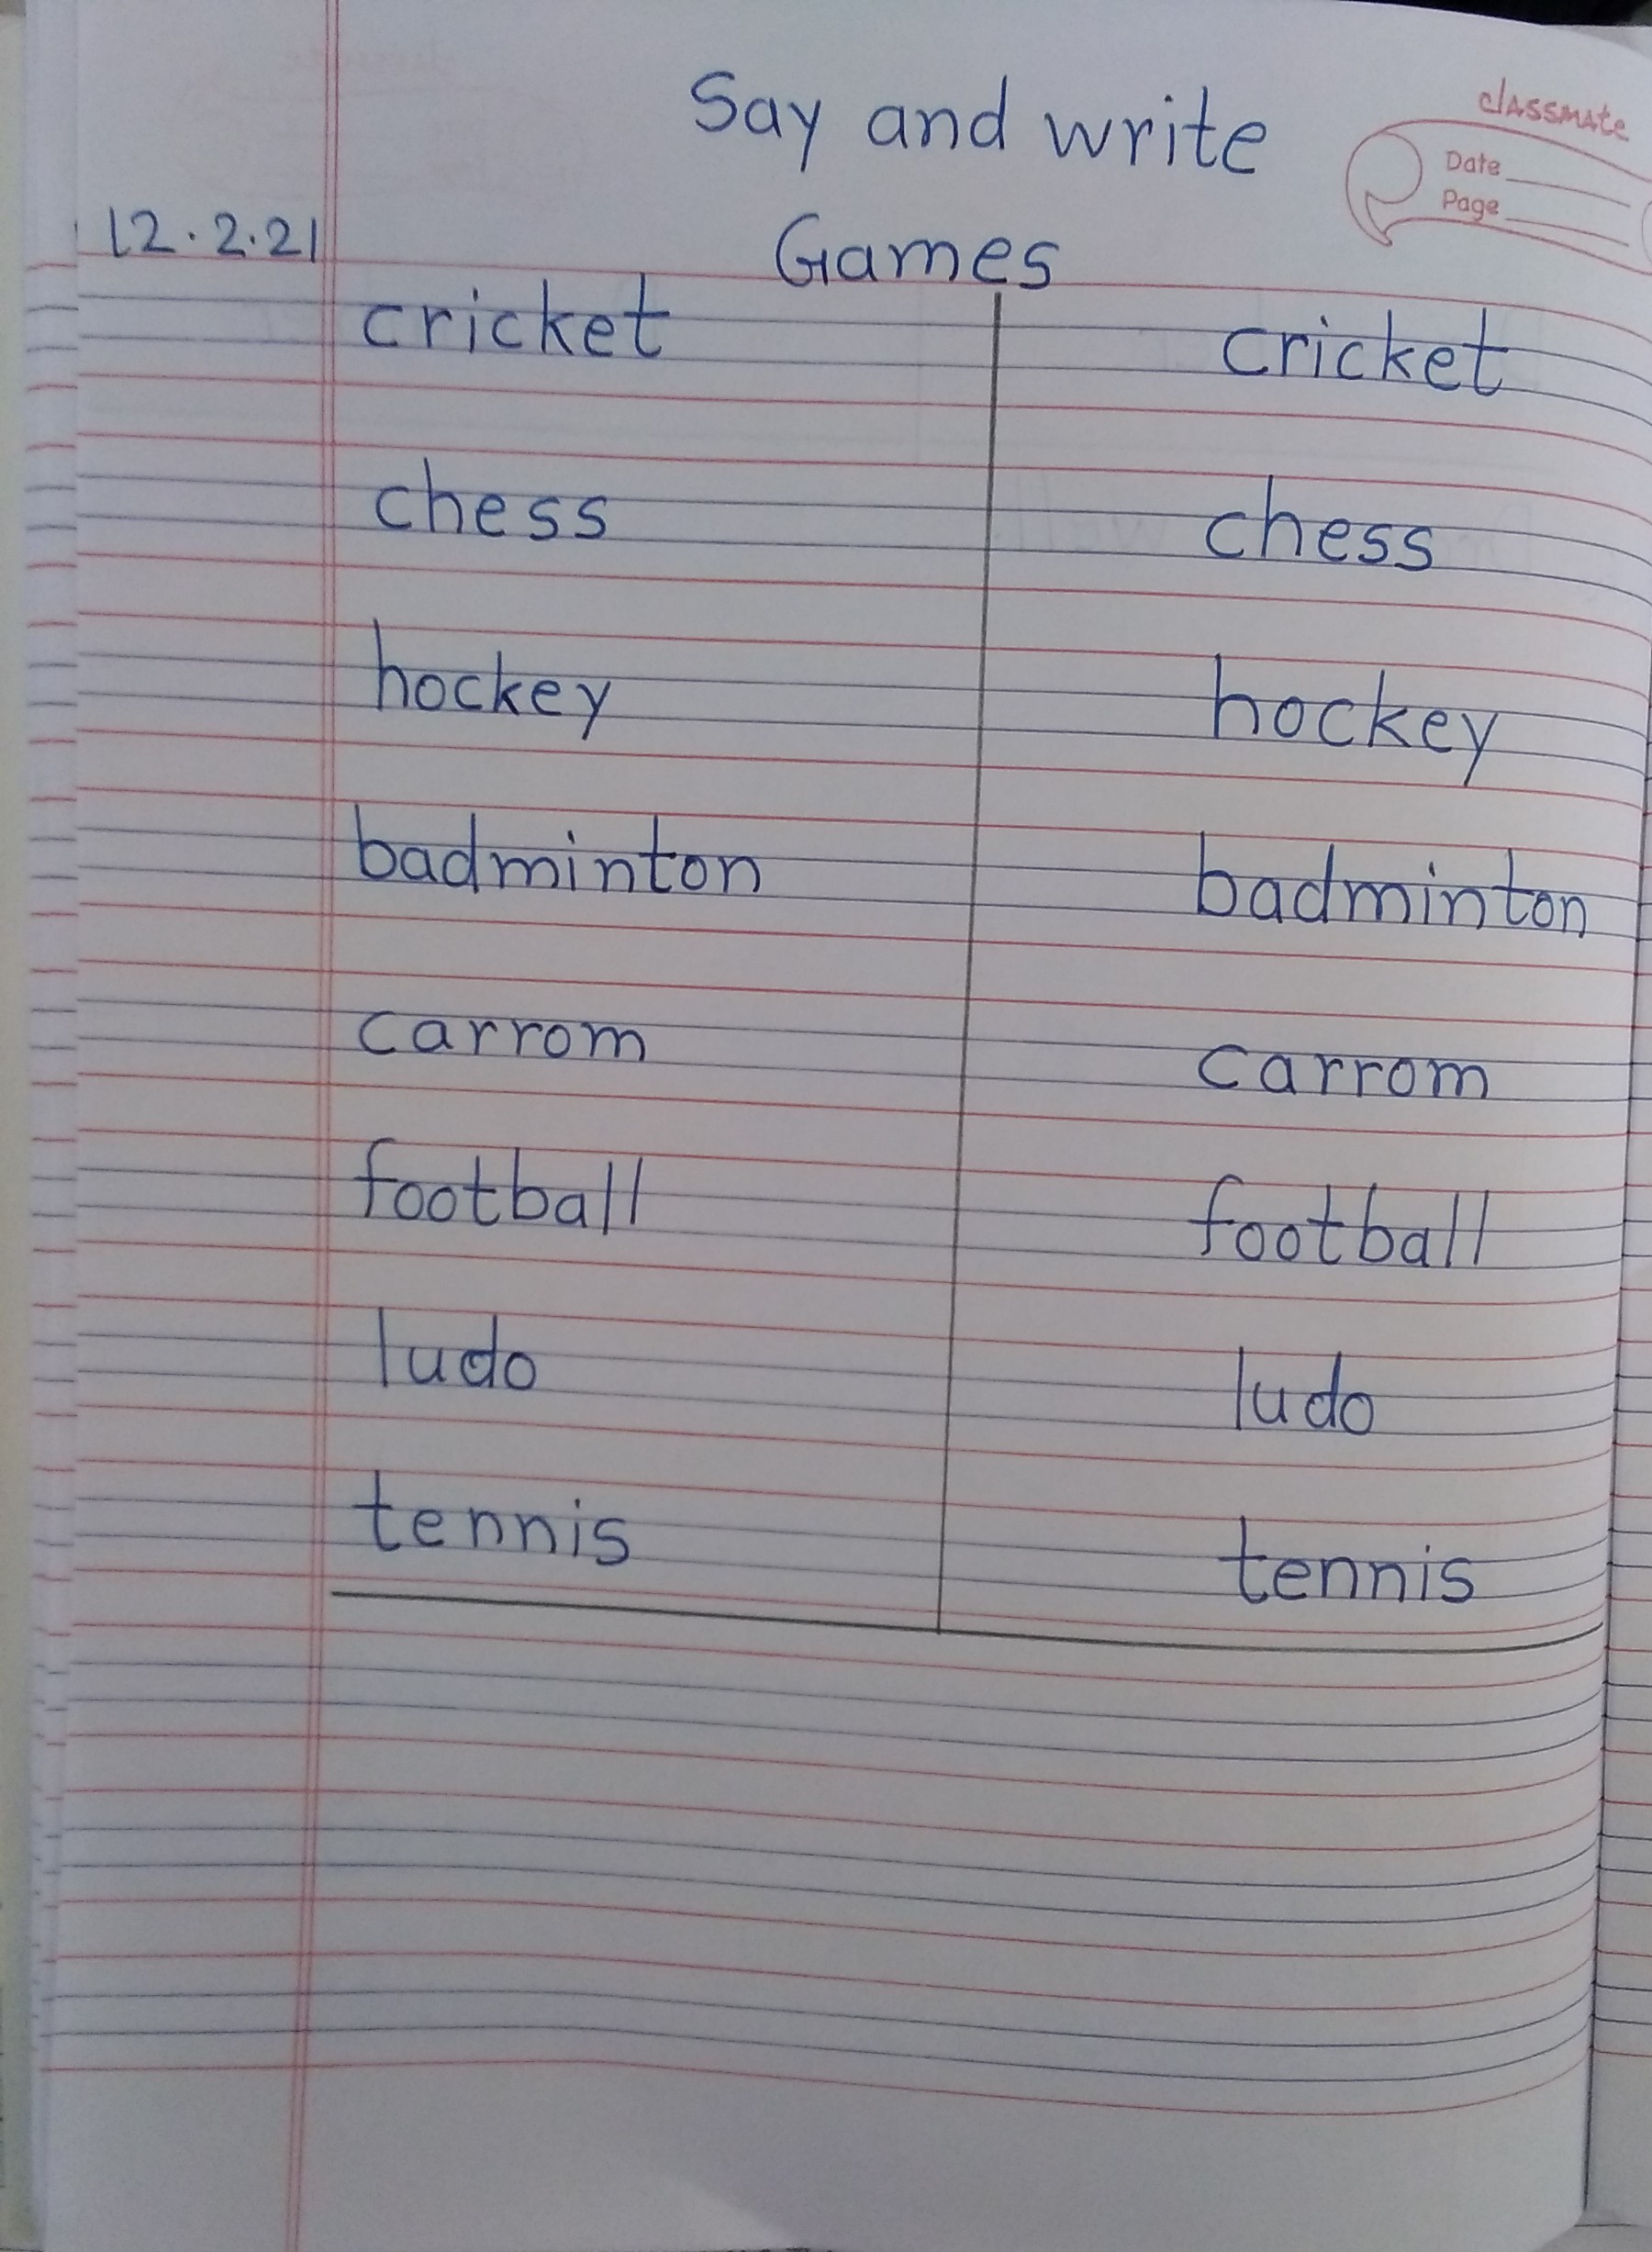 Say and write
classmate
Date
Page
12.2.21
Games
cricket cricket
chess chess
hockey hockey
badminton badminton
carrom carrom
football football
ludo ludo
tennis tennis